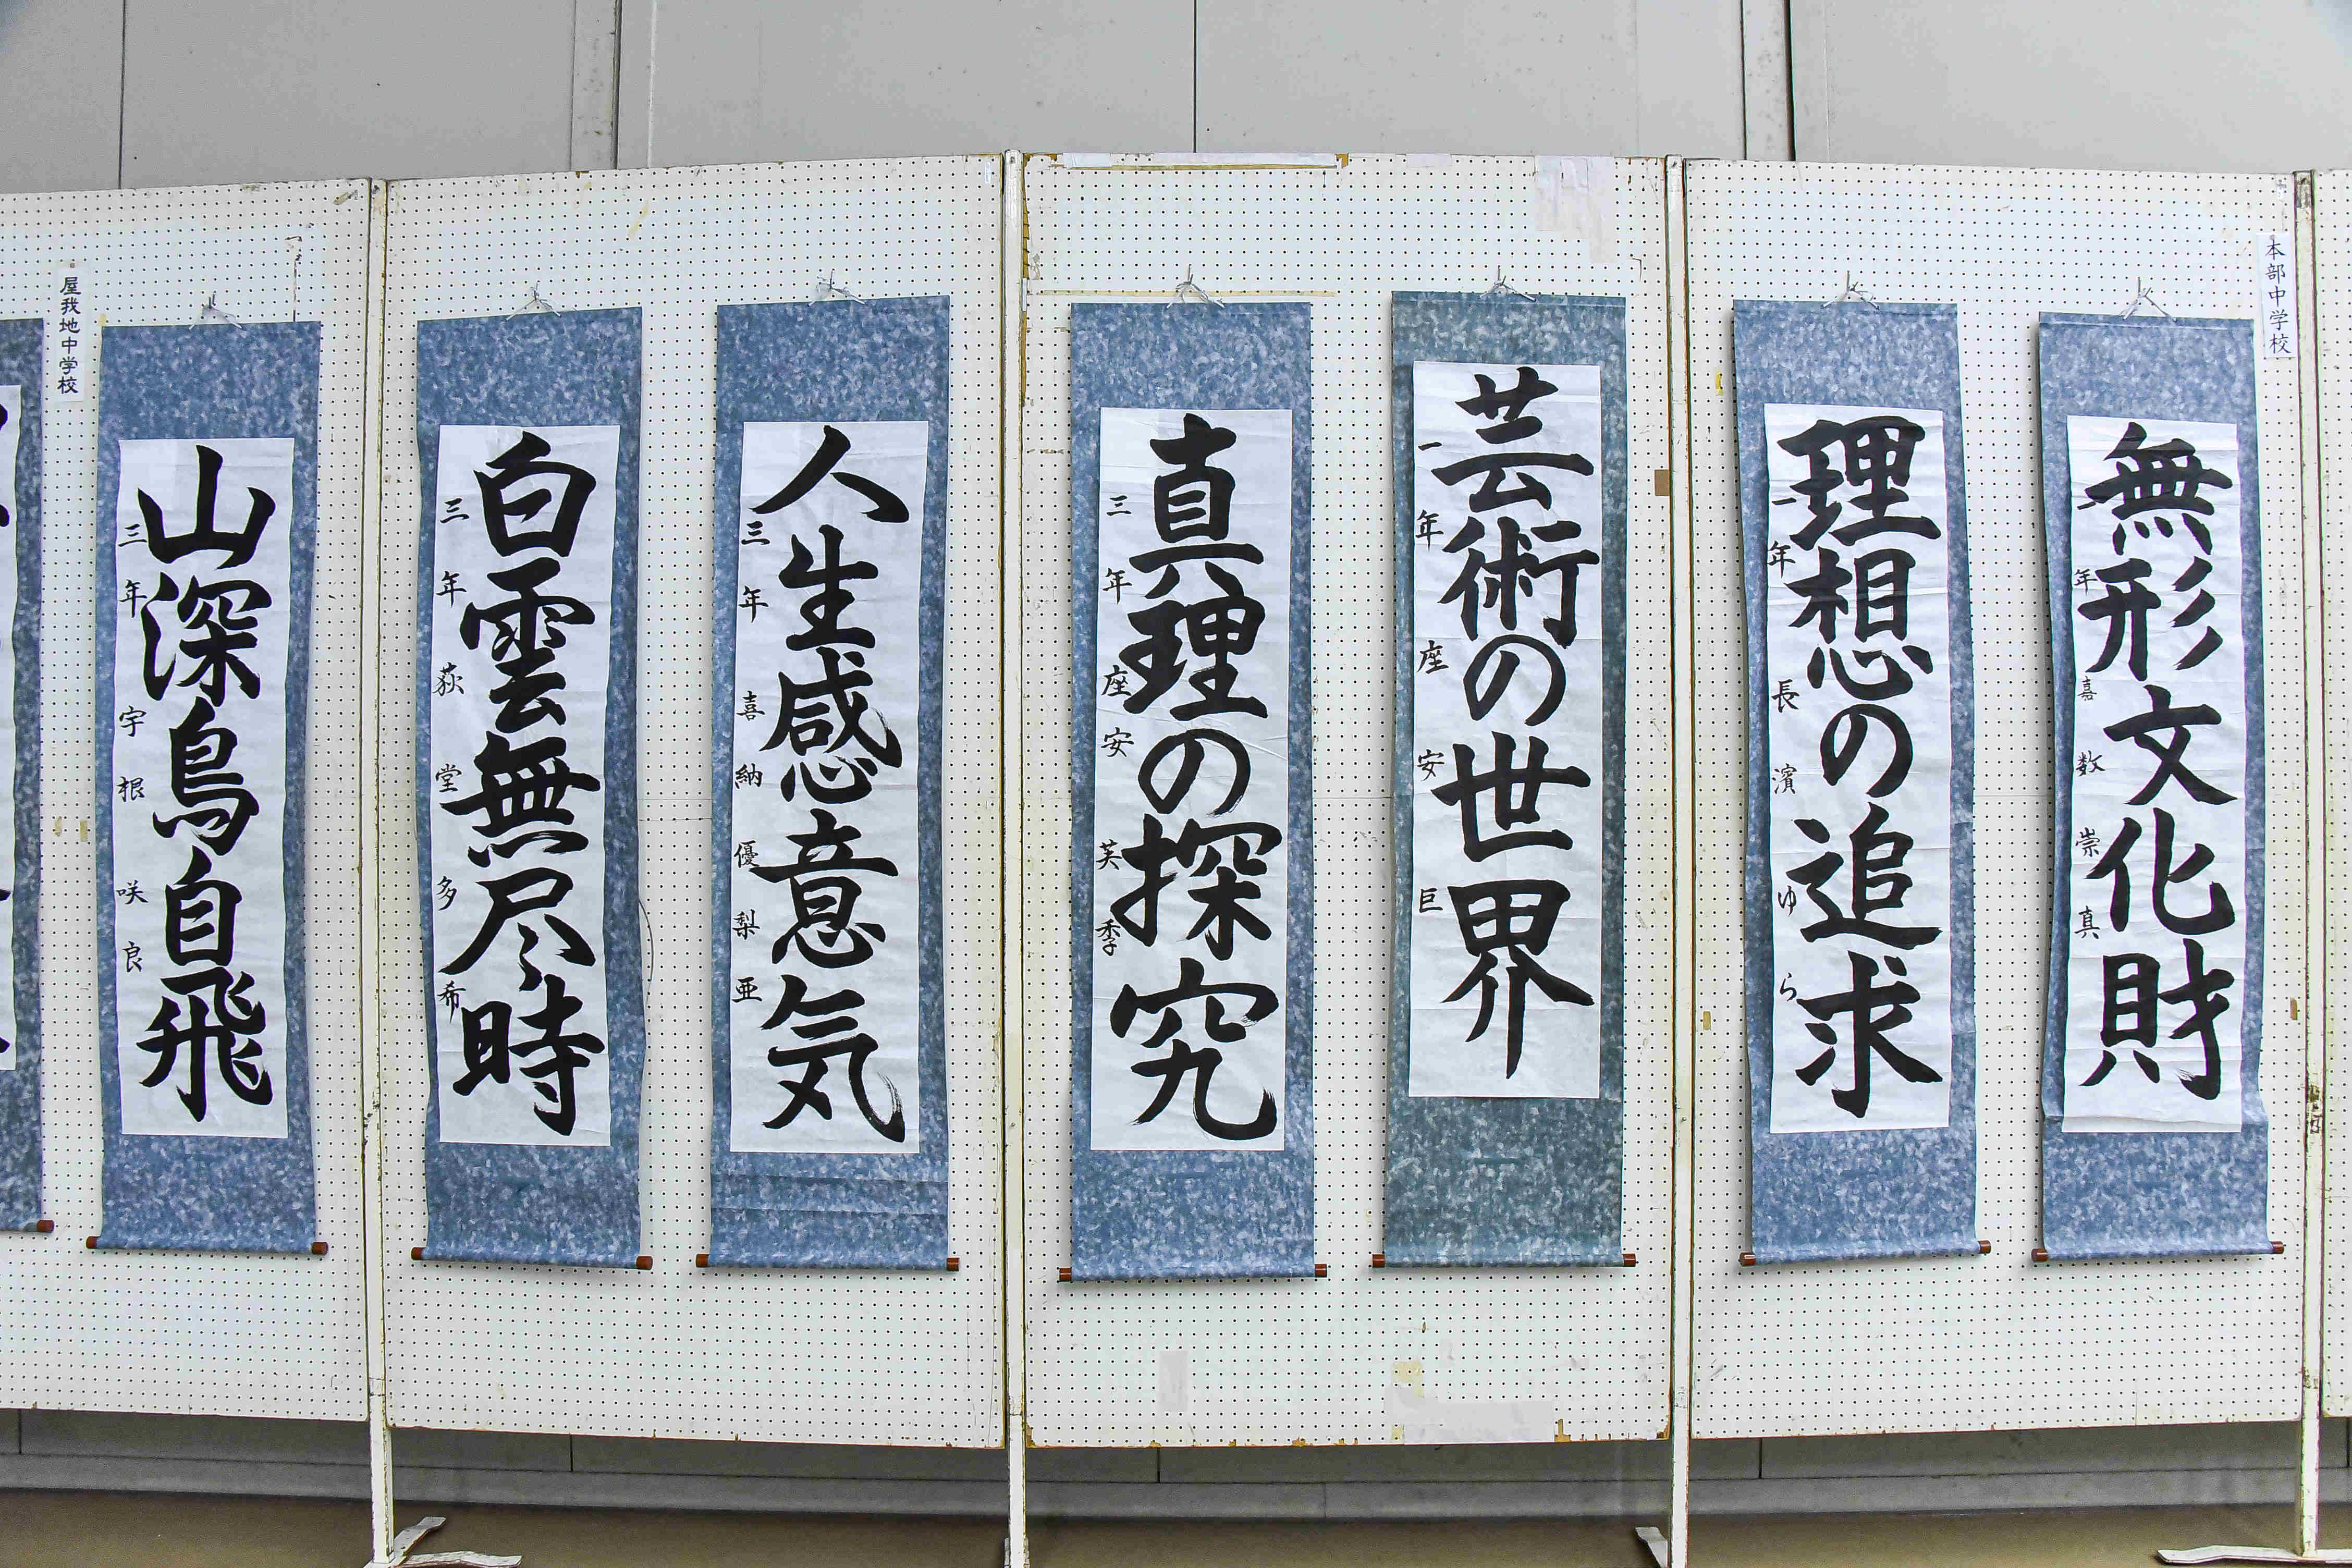 本部中学校
無形文化財
一年 嘉数崇真
理想の追求
一年 長濱ゆら
芸術の世界
一年 座安巨
真理の探究
三年 座安芙季
人生感意気
三年 喜納優梨亜
白雲無尽時
三年 荻堂多希
山深鳥自飛
三年 宇根咲良
屋我地中学校